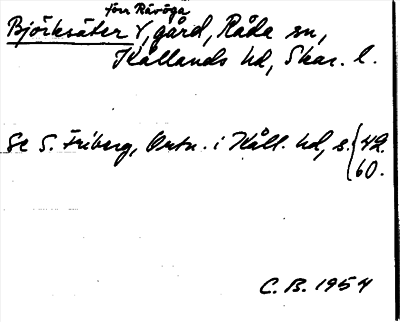 förr Rävöga
Björksäter V, gård, Råda sn,
Kållands hd, Skar. l.
Se S. Friberg, Ortn. i Kåll. hd, s. { 42.
60.
C. B. 1954